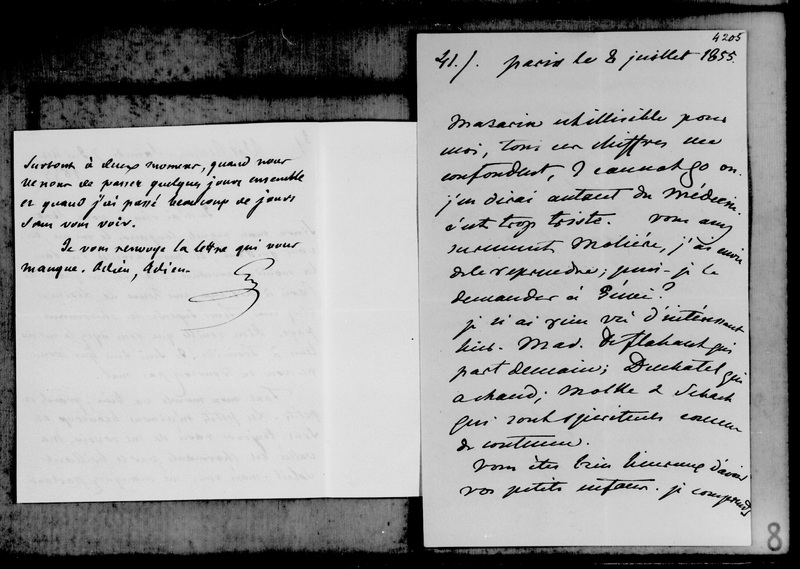 Surtout à deux momens, quand nous
venons de passer quelques jours ensemble
et quand j'ai passé beaucoup de jours
sans vous voir.
Je vous renvoye la lettre qui vous
manque. Adieu, Adieu.
4205
41./. paris le 8 juillet 1855.
Mazarin est illisible pour
moi, tous ces chiffres me
confondent, I cannot go on.
j'en dirai autant du Médecin.
c'est trop triste. Vous avez
surement Molière, j'ai envie
de le reprendre; puis-je le
demander à Génie?
je n'ai rien vu d'intéressant
hier. Mad. de Flahaut qui
part demain; Duchatel qui
a chaud; Molke & Schack
qui sont spirituels comme
de coutume.
Vous êtes bien heureux d'avoir
vos petits enfans. je comprends
8